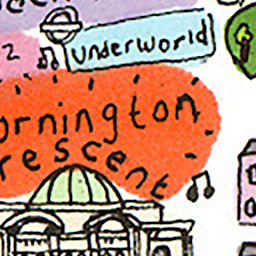 underworld
ornington
rescent